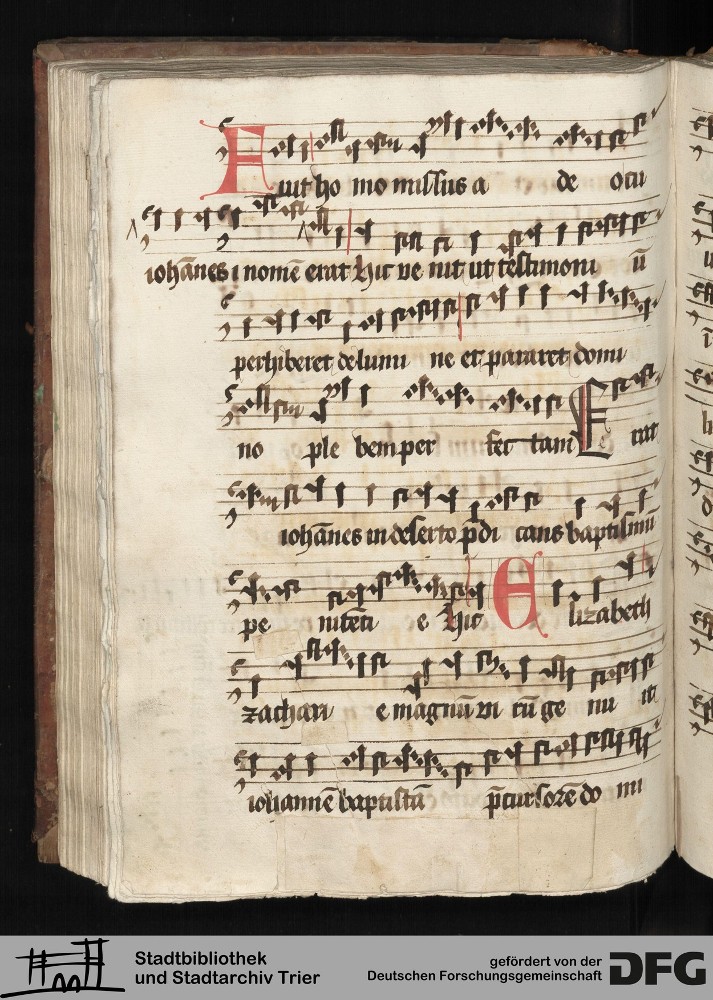 Fuit ho mo missus a de o cui
iohānes i nomē erat Hic ve nit ut testimoni ū
perhiberet de lumi ne et pararet domi
no ple bem per fec tam E rat
iohānes in deserto p̄di cans baptismū
pe nitēti e Hic Elizabeth
zachari e magnū vi rū ge nu it
iohannē baptistā p̄cursorē do mi
Stadtbibliothek
und Stadtarchiv Trier
gefördert von der
Deutschen Forschungsgemeinschaft
DFG